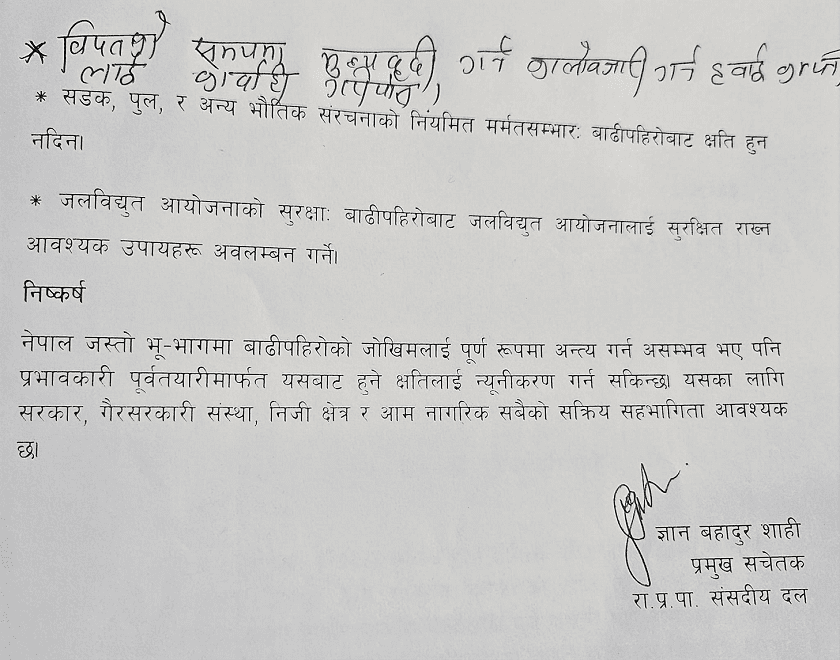 * विपतको समयमा मूल्यवृद्दी गर्ने कालोवजारी गर्ने
लाई कार्वाही गर्नुपर्ने।
* सडक, पुल, र अन्य भौतिक संरचनाको नियमित मर्मतसम्भार: बाढीपहिरोबाट क्षति हुन
नदिन।
* जलविद्युत आयोजनाको सुरक्षा: बाढीपहिरोबाट जलविद्युत आयोजनालाई सुरक्षित राख्न
आवश्यक उपायहरू अवलम्बन गर्ने।
निष्कर्ष
नेपाल जस्तो भू-भागमा बाढीपहिरोको जोखिमलाई पूर्ण रूपमा अन्त्य गर्न असम्भव भए पनि
प्रभावकारी पूर्वतयारीमार्फत यसबाट हुने क्षतिलाई न्यूनीकरण गर्न सकिन्छ। यसका लागि
सरकार, गैरसरकारी संस्था, निजी क्षेत्र र आम नागरिक सबैको सक्रिय सहभागिता आवश्यक
छ।
ज्ञान बहादुर शाही
प्रमुख सचेतक
रा.प्र.पा. संसदीय दल